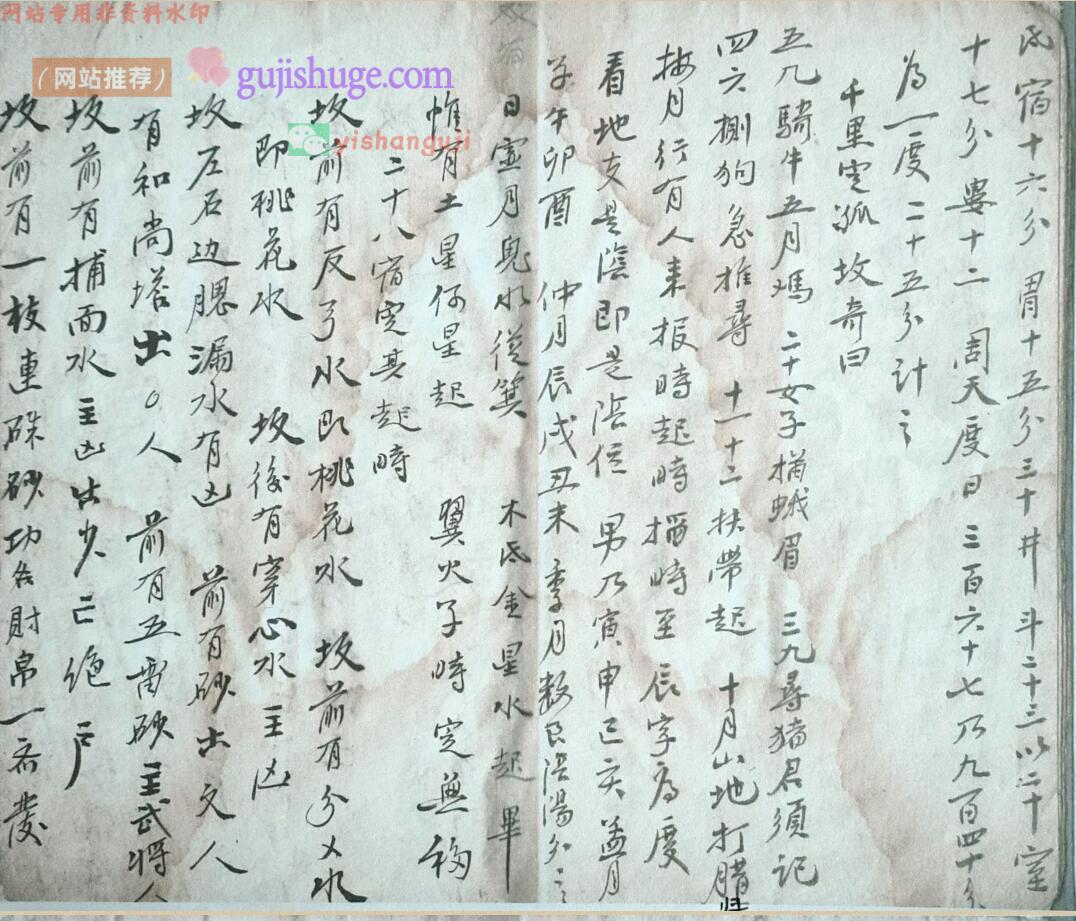 网站专用非资料水印
(网站推荐)
gujishuge.com
yishanguji
氐宿十六分 胃十五分三十井斗二十三以二十室
十七分娄十二 周天度日三百六十七乃九百四十分
為一度二十五分计之
千里定孤坟奇曰
五八騎牛五月馮 二十女子描蛾眉 三九尋猪君須記
四六捌狗急推尋 十一十二扶帶起 十月山地打腊
按月行有人来报時起時搯時至辰字為度
看地支是陰即是陰位 男乃寅申巳亥孟月
子午卯酉 仲月辰戌丑未季月数 陰陽分之
日虚月鬼水從箕 木氐金星水起畢
惟有土星何星起 翼火子時定無移
二十八宿定其起時
坟前有反弓水即桃花水 坟前有分乂水
即桃花水 坟後有穿心水主凶
坟左右边腮漏水有凶 前有砂出文人
有和尚塔出○人 前有五雷砂主武将人
坂前有捕面水主凶出少亡绝户
坟前有一枝連硃砂功名財帛一齐發